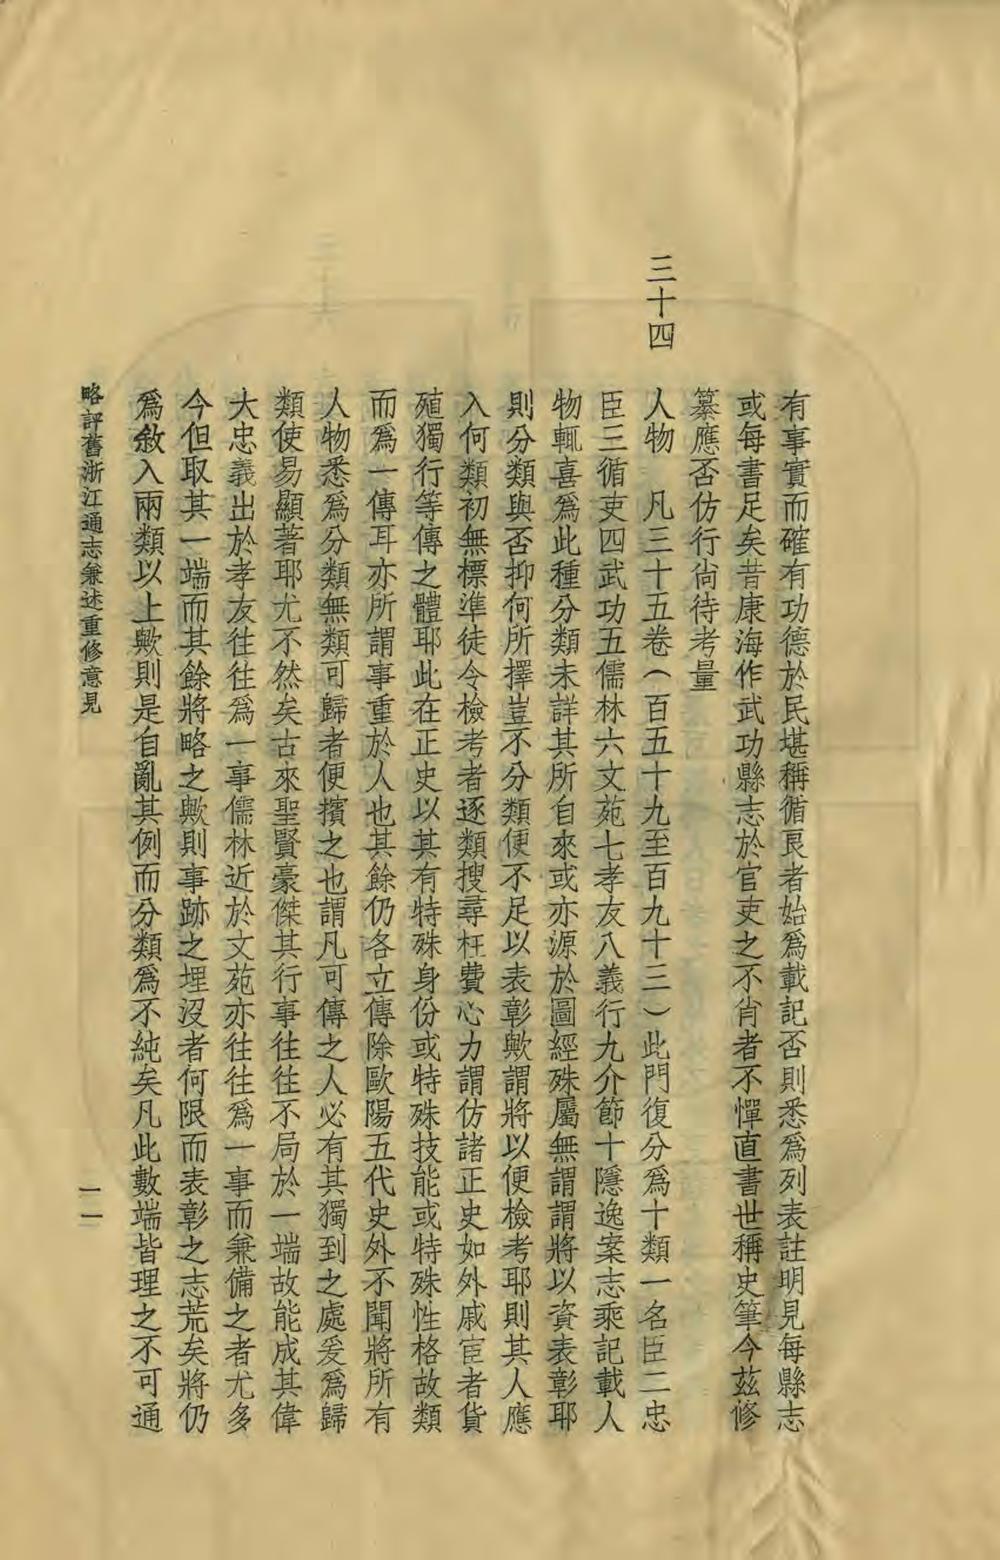 有事實而確有功德於民堪稱循良者始爲載記否則悉爲列表註明見每縣志
或每書足矣昔康海作武功縣志於官吏之不肖者不憚直書世稱史筆今茲修
纂應否仿行尙待考量
三十四
人物　凡三十五卷（百五十九至百九十三）此門復分爲十類一名臣二忠
臣三循吏四武功五儒林六文苑七孝友八義行九介節十隱逸案志乘記載人
物輒喜爲此種分類未詳其所自來或亦源於圖經殊屬無謂謂將以資表彰耶
則分類與否抑何所擇豈不分類便不足以表彰歟謂將以便檢考耶則其人應
入何類初無標準徒令檢考者逐類搜尋枉費心力謂仿諸正史如外戚宦者貨
殖獨行等傳之體耶此在正史以其有特殊身份或特殊技能或特殊性格故類
而爲一傳耳亦所謂事重於人也其餘仍各立傳除歐陽五代史外不聞將所有
人物悉爲分類無類可歸者便擯之也謂凡可傳之人必有其獨到之處爰爲歸
類使易顯著耶尤不然矣古來聖賢豪傑其行事往往不局於一端故能成其偉
大忠義出於孝友往往爲一事儒林近於文苑亦往往爲一事而兼備之者尤多
今但取其一端而其餘將略之歟則事跡之埋沒者何限而表彰之志荒矣將仍
爲敘入兩類以上歟則是自亂其例而分類爲不純矣凡此數端皆理之不可通
略評舊浙江通志兼述重修意見
一一